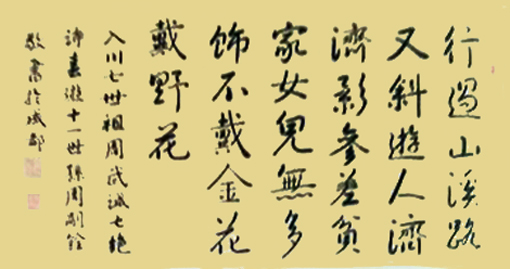 行過山溪路
又斜遊人濟
濟影參差貧
家女兒無多
飾不戴金花
戴野花
入川七世祖周武誠七絕
詩春遊十一世孫周嗣銓
敬書於成都